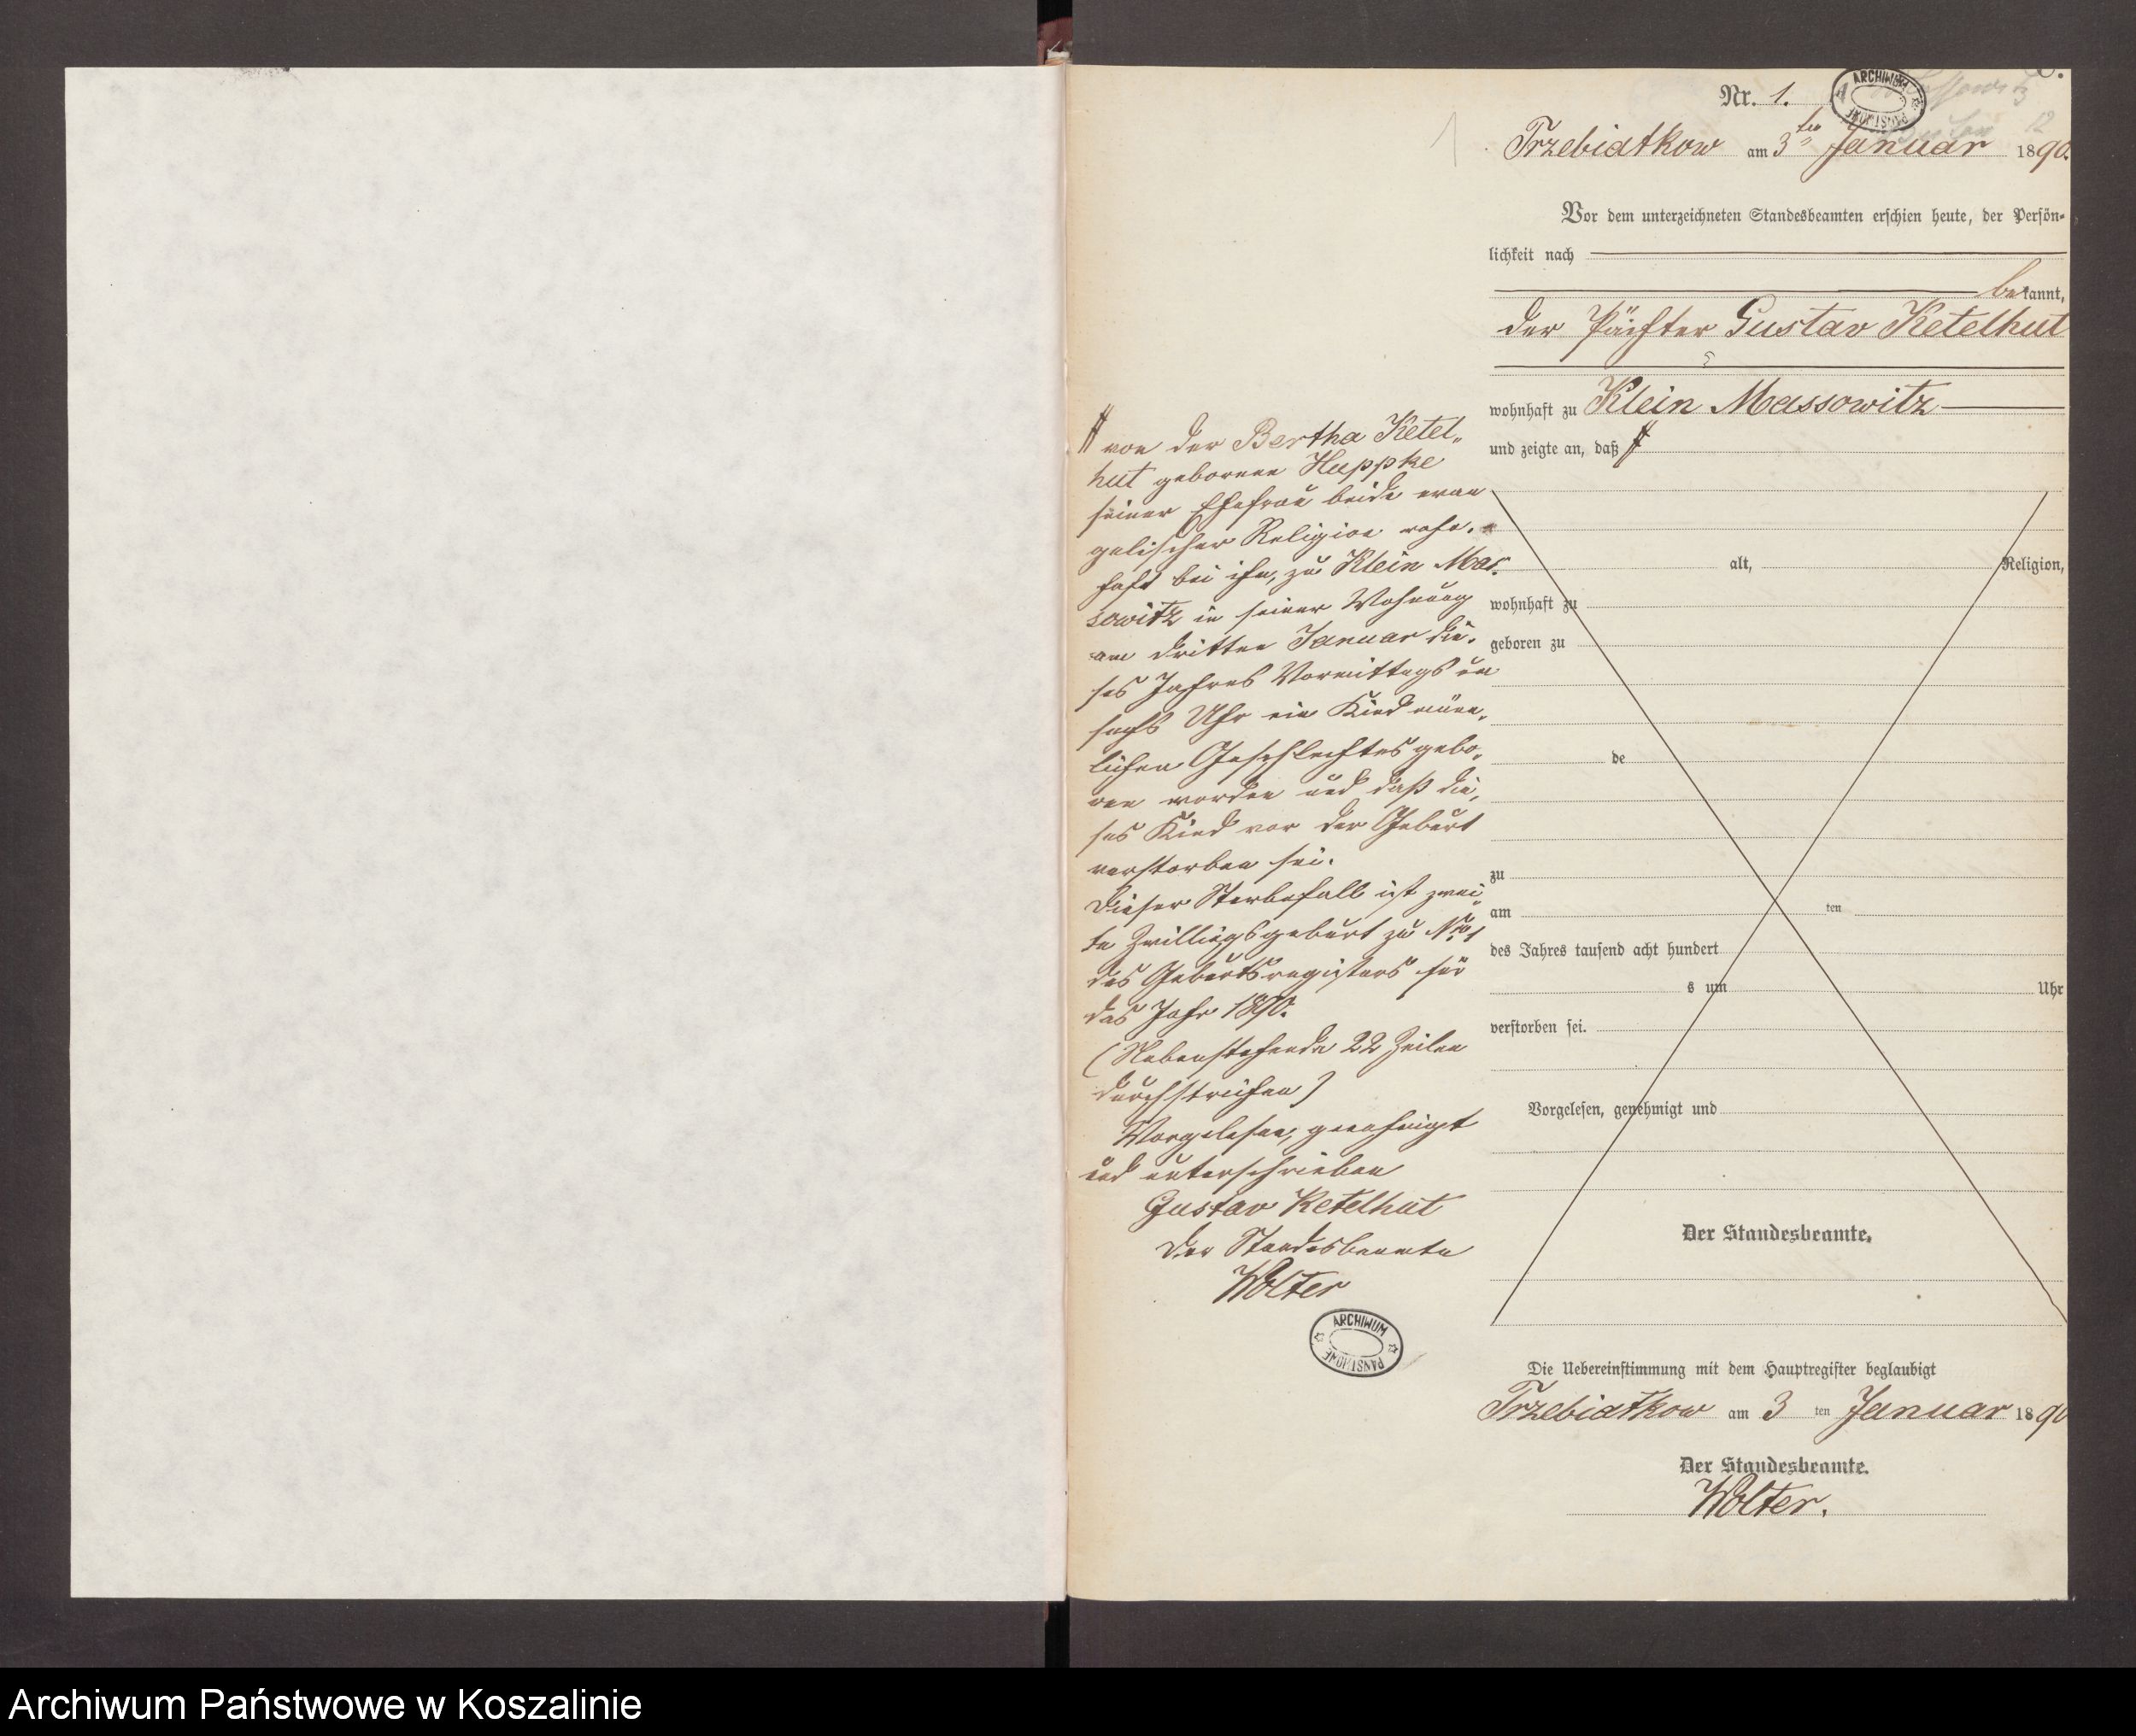 Nr. 1.
ARCHIWUM PAŃSTWOWE
Trzebiatkow am 3ten Januar 1890.
Vor dem unterzeichneten Standesbeamten erschien heute, der Persön-
lichkeit nach
bekannt,
der Pächter Gustav Ketelhut
wohnhaft zu Klein Massowitz
und zeigte an, daß
von der Bertha Ketel-
hut geborenen Huppke
seiner Ehefrau beide evan
gelischer Religion wohn-
haft bei ihm, zu Klein Mas-
sowitz in seiner Wohnung
am dritten Januar die-
ses Jahres Vormittags um
sechs Uhr ein Kind männ-
lichen Geschlechtes gebo-
ren worden und daß die-
ses Kind vor der Geburt
verstorben sei.
Dieser Sterbefall ist zwei-
te Zwillingsgeburt zu Nro 1
des Geburtsregisters für
das Jahr 1890.
(Nebenstehende 22 Zeilen
durchstrichen)
Vorgelesen, genehmigt
und unterschrieben
Gustav Ketelhut
Der Standesbeamte
Wolter
ARCHIWUM PAŃSTWOWE
alt, Religion,
wohnhaft zu
geboren zu
de
zu
am ten
des Jahres tausend acht hundert
s um Uhr
verstorben sei.
Vorgelesen, genehmigt und
Der Standesbeamte.
Die Uebereinstimmung mit dem Hauptregister beglaubigt
Trzebiatkow am 3 ten Januar 1890
Der Standesbeamte.
Wolter.
Archiwum Państwowe w Koszalinie